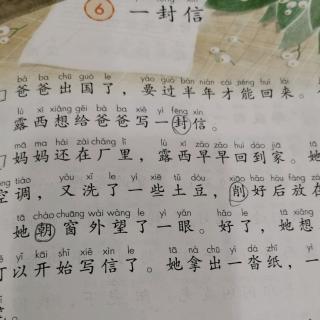 6 一封信
bà ba chū guó le yào guò bàn nián cái néng huí lái
爸爸出国了，要过半年才能回来。
lù xī xiǎng gěi bà ba xiě yì fēng xìn
露西想给爸爸写一封信。
mā ma hái zài chǎng lǐ lù xī zǎo zǎo huí dào jiā tā
妈妈还在厂里，露西早早回到家。她
tiáo yòu xǐ le yì xiē tǔ dòu xiāo hǎo hòu fàng zài
空调，又洗了一些土豆，削好后放在
tā cháo chuāng wài wàng le yì yǎn hǎo le tā xiǎng
她朝窗外望了一眼。好了，她想
yǐ kāi shǐ xiě xìn le tā ná chū yì dá zhǐ yì
可以开始写信了。她拿出一沓纸，一